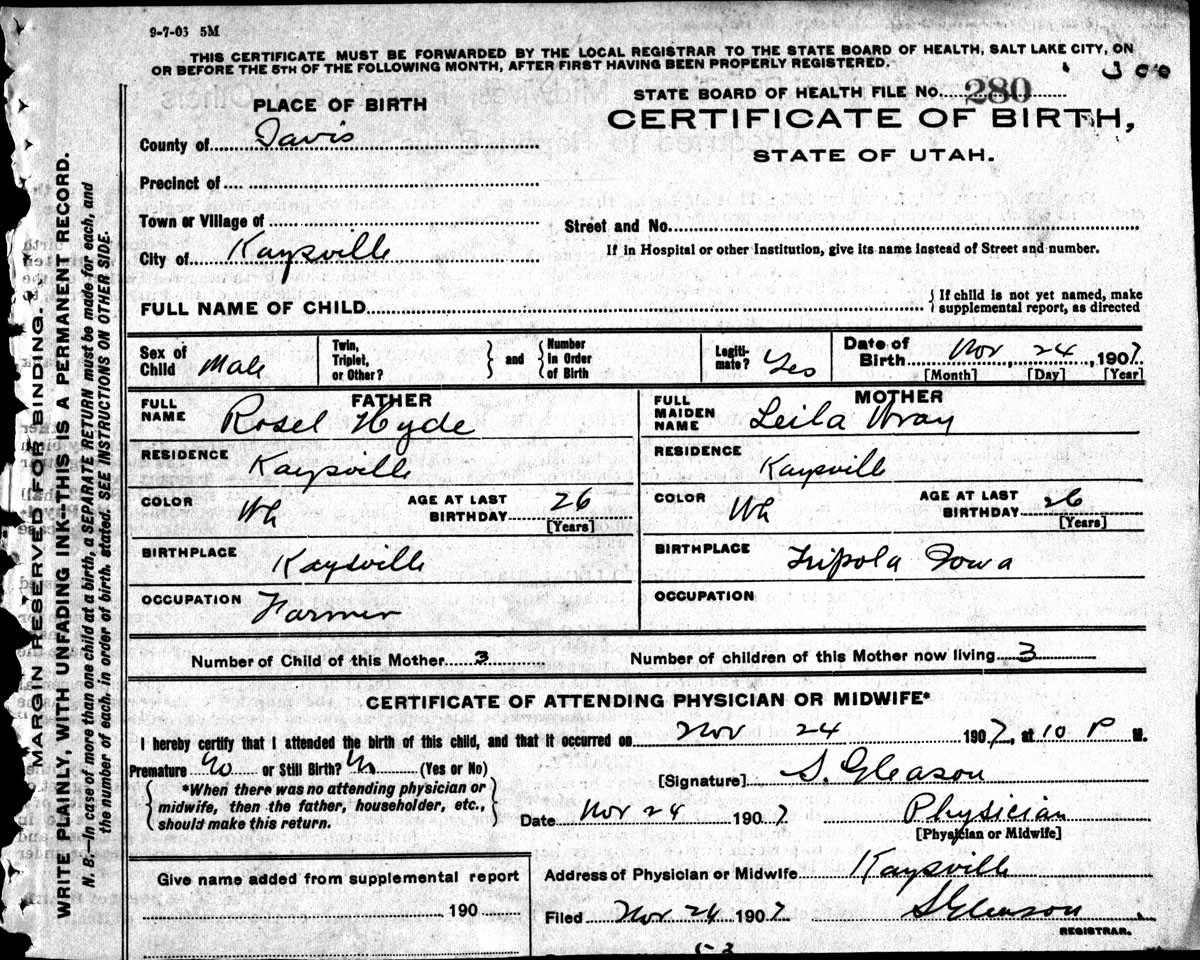 9-7-03 5M
THIS CERTIFICATE MUST BE FORWARDED BY THE LOCAL REGISTRAR TO THE STATE BOARD OF HEALTH, SALT LAKE CITY, ON
OR BEFORE THE 5TH OF THE FOLLOWING MONTH, AFTER FIRST HAVING BEEN PROPERLY REGISTERED.
STATE BOARD OF HEALTH FILE No. 280
CERTIFICATE OF BIRTH,
STATE OF UTAH.
PLACE OF BIRTH
County of Davis
Precinct of
Town or Village of
City of Kaysville
Street and No.
If in Hospital or other Institution, give its name instead of Street and number.
FULL NAME OF CHILD
{ If child is not yet named, make
supplemental report, as directed
Sex of Child Male
Twin, Triplet, or Other? } and { Number In Order of Birth
Legitimate? Yes
Date of Birth Nov 24, 1907
[Month] [Day] [Year]
FATHER
FULL NAME Rosel Hyde
RESIDENCE Kaysville
COLOR Wh AGE AT LAST BIRTHDAY 26
[Years]
BIRTHPLACE Kaysville
OCCUPATION Farmer
MOTHER
FULL MAIDEN NAME Leila Wray
RESIDENCE Kaysville
COLOR Wh AGE AT LAST BIRTHDAY 26
[Years]
BIRTHPLACE Tripola Iowa
OCCUPATION
Number of Child of this Mother 3 Number of children of this Mother now living 3
CERTIFICATE OF ATTENDING PHYSICIAN OR MIDWIFE*
I hereby certify that I attended the birth of this child, and that it occurred on Nov 24 1907, at 10 P M.
Premature No or Still Birth? No (Yes or No)
*When there was no attending physician or
midwife, then the father, householder, etc.,
should make this return.
[Signature] S. Gleason
Date Nov 24 1907 Physician
[Physician or Midwife]
Give name added from supplemental report
190
Address of Physician or Midwife Kaysville
Filed Nov 24 1907 S Gleason
REGISTRAR.
MARGIN RESERVED FOR BINDING.
WRITE PLAINLY, WITH UNFADING INK—THIS IS A PERMANENT RECORD.
N. B.—In case of more than one child at a birth, a SEPARATE RETURN must be made for each, and
the number of each, in order of birth, stated. SEE INSTRUCTIONS ON OTHER SIDE.